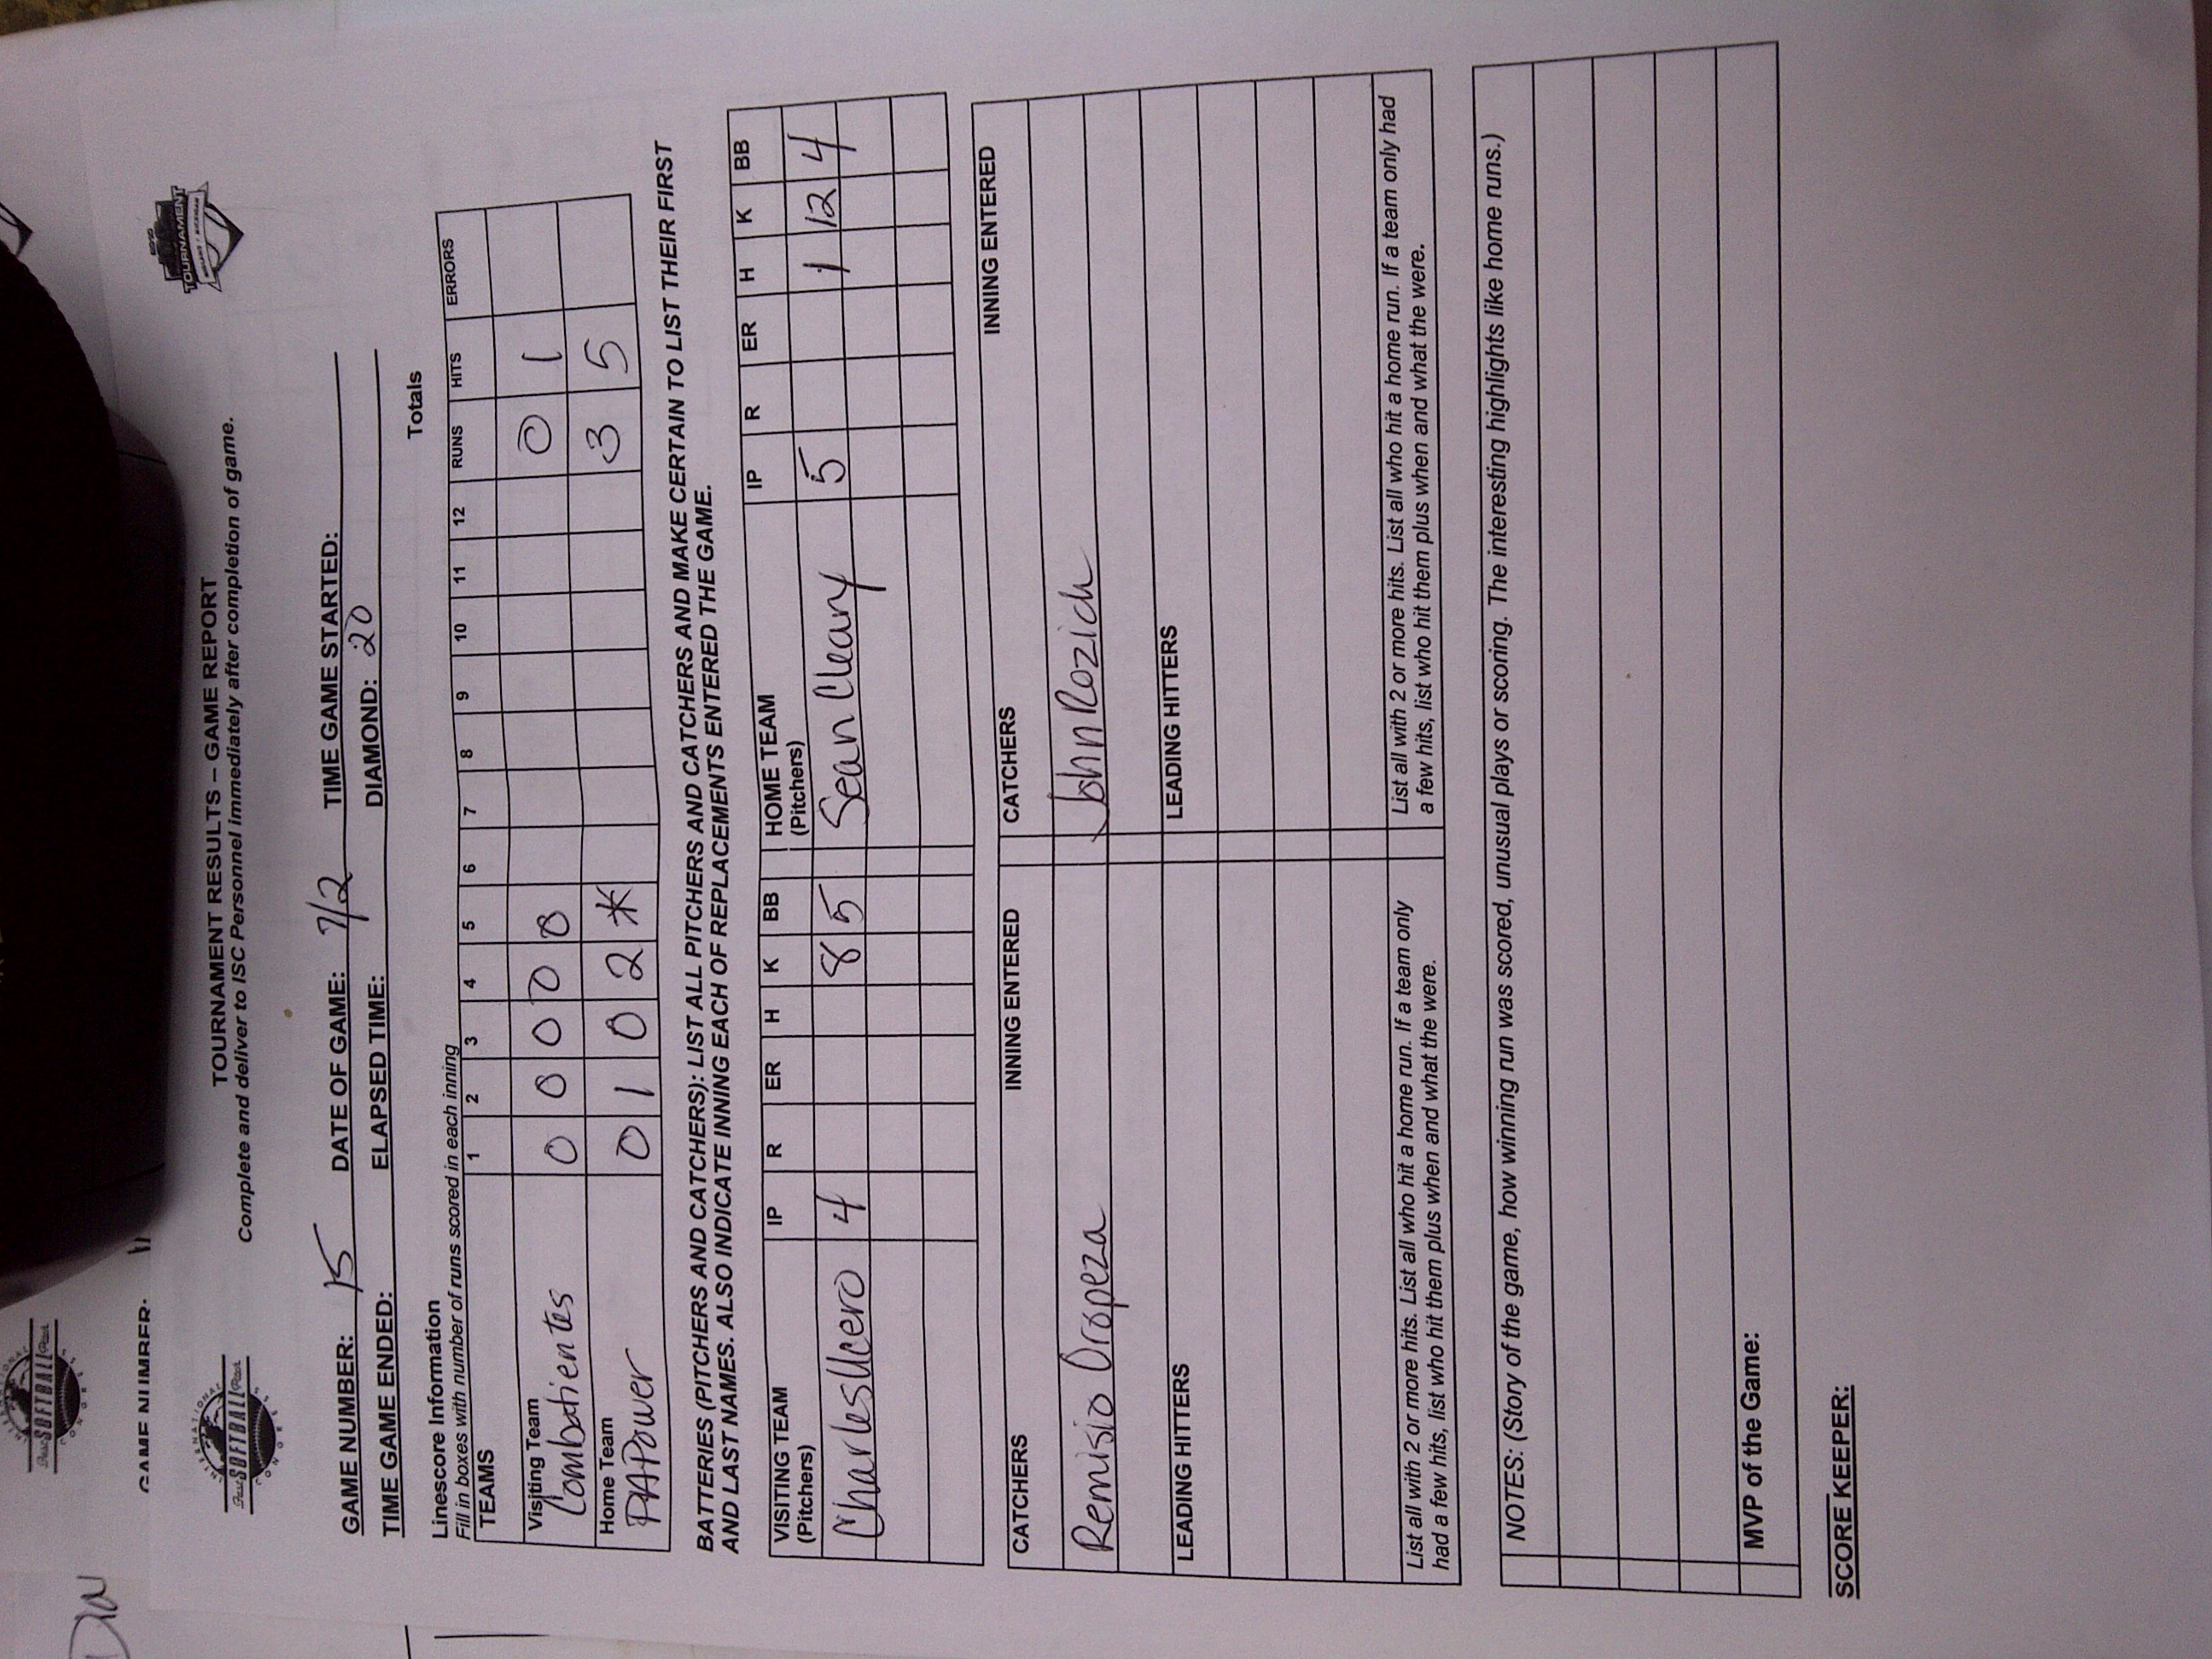 GAME NUMBER:
TOURNAMENT
INTERNATIONAL
Fast SOFTBALL Pitch
CONGRESS
TOURNAMENT RESULTS – GAME REPORT
Complete and deliver to ISC Personnel immediately after completion of game.
GAME NUMBER: 15 DATE OF GAME: 7/2 TIME GAME STARTED:
TIME GAME ENDED: ELAPSED TIME: DIAMOND: 20
Linescore Information Totals
Fill in boxes with number of runs scored in each inning
TEAMS 1 2 3 4 5 6 7 8 9 10 11 12 RUNS HITS ERRORS
Visiting Team
Combatientes 0 0 0 0 0 0 1
Home Team
PA Power 0 1 0 2 * 3 5
BATTERIES (PITCHERS AND CATCHERS): LIST ALL PITCHERS AND CATCHERS AND MAKE CERTAIN TO LIST THEIR FIRST
AND LAST NAMES. ALSO INDICATE INNING EACH OF REPLACEMENTS ENTERED THE GAME.
VISITING TEAM IP R ER H K BB HOME TEAM IP R ER H K BB
(Pitchers) (Pitchers)
Charles Ucero 4 8 5 Sean Cleary 5 1 12 4
CATCHERS INNING ENTERED CATCHERS INNING ENTERED
Remisio Oropeza John Rozich
LEADING HITTERS LEADING HITTERS
List all with 2 or more hits. List all who hit a home run. If a team only List all with 2 or more hits. List all who hit a home run. If a team only had
had a few hits, list who hit them plus when and what the were. a few hits, list who hit them plus when and what the were.
NOTES: (Story of the game, how winning run was scored, unusual plays or scoring. The interesting highlights like home runs.)
MVP of the Game:
SCORE KEEPER: